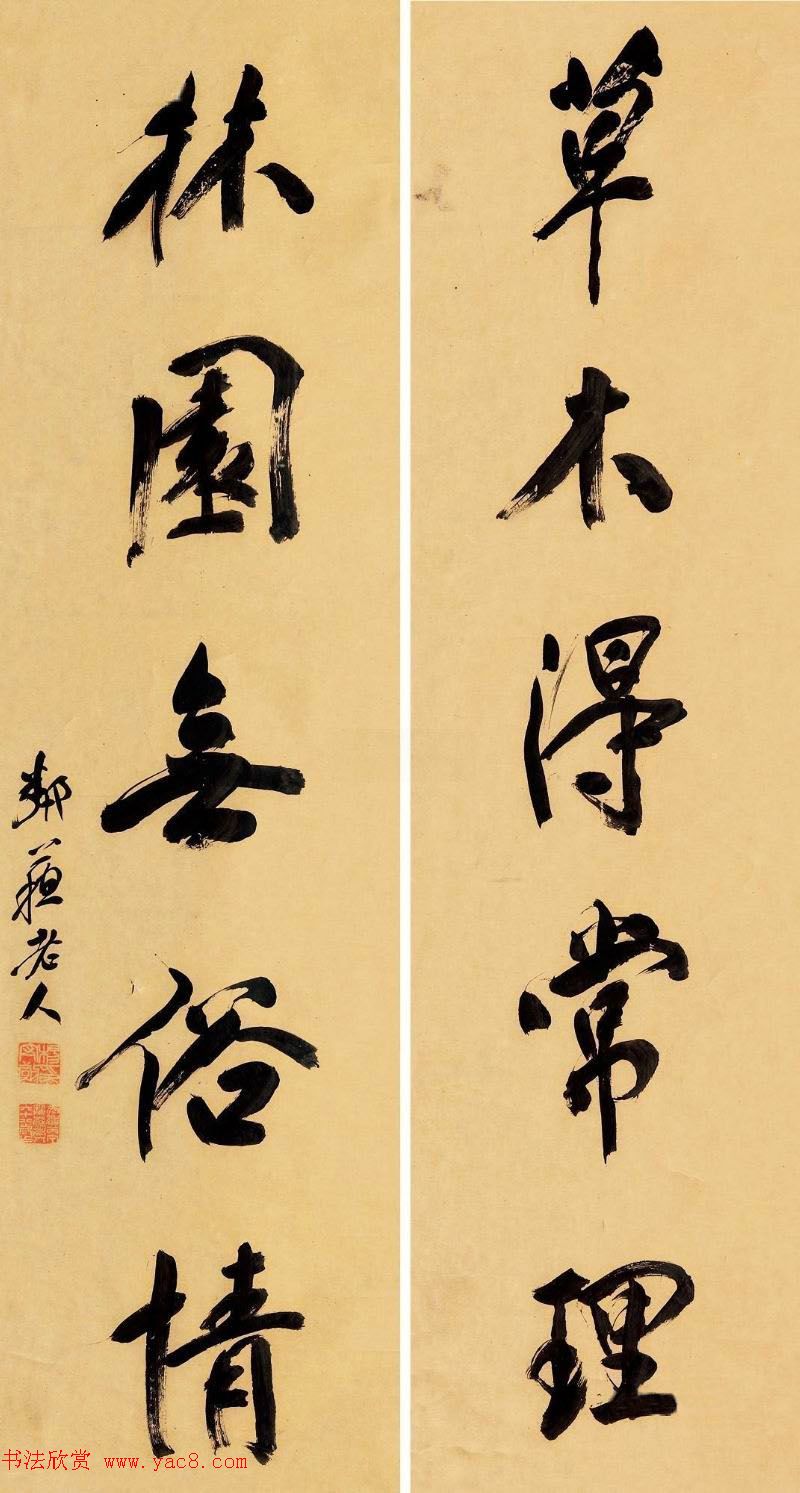 草木得常理
林園無俗情
鄰蘇老人
书法欣赏 www.yac8.com